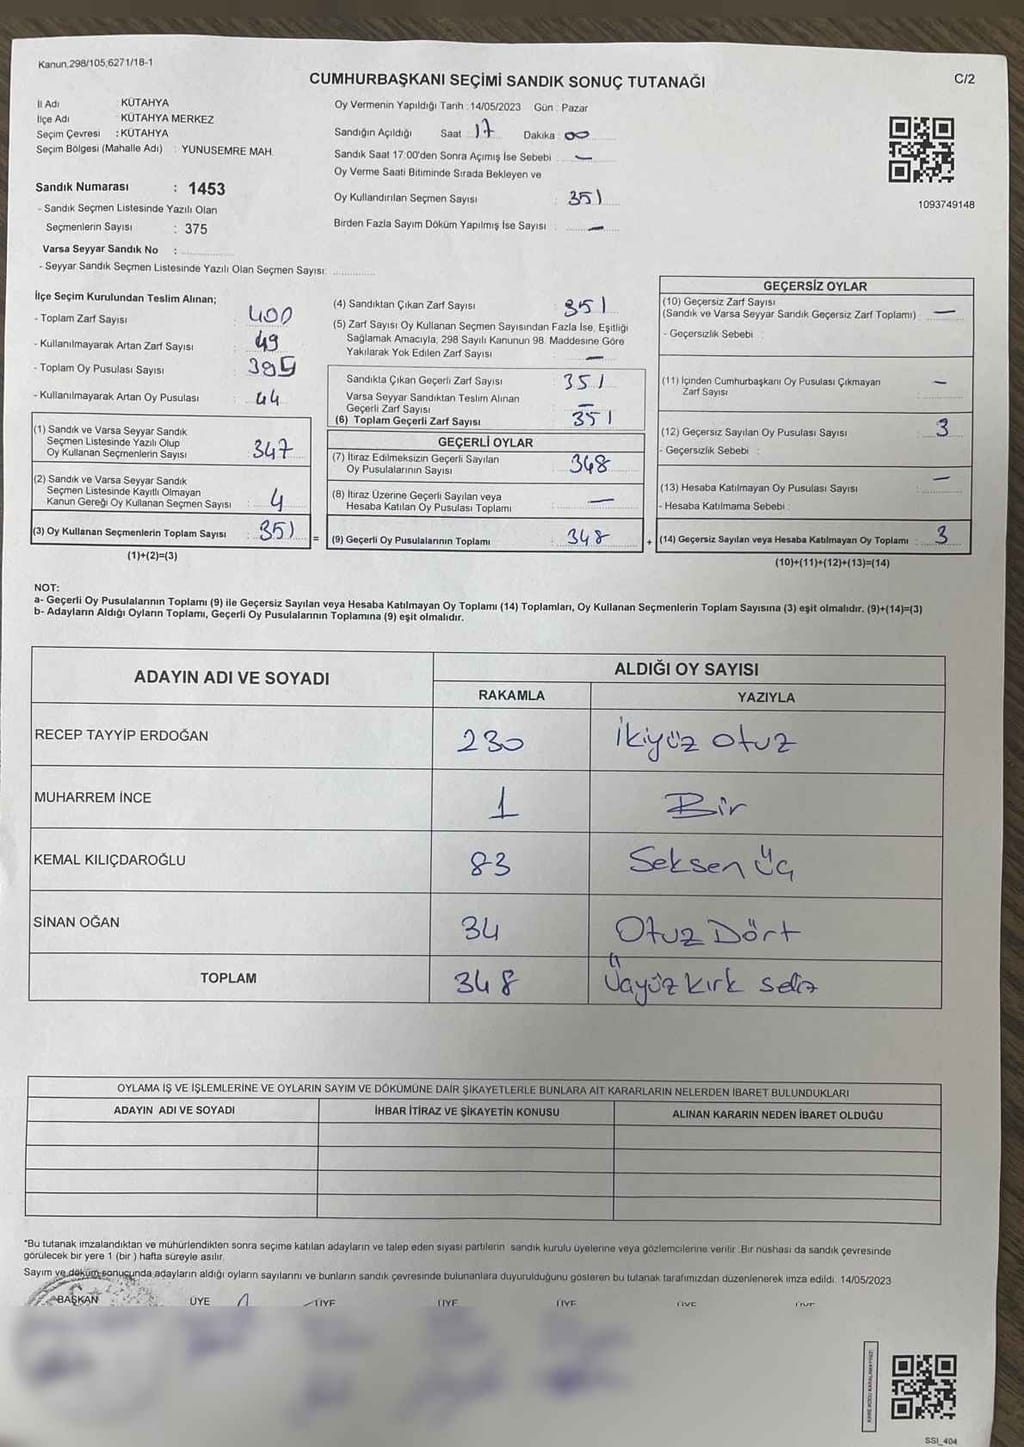 Kanun,298/105,6271/18-1
CUMHURBAŞKANI SEÇİMİ SANDIK SONUÇ TUTANAĞI
C/2
İl Adı KÜTAHYA
İlçe Adı KÜTAHYA MERKEZ
Seçim Çevresi : KÜTAHYA
Seçim Bölgesi (Mahalle Adı) : YUNUSEMRE MAH.
Sandık Numarası : 1453
- Sandık Seçmen Listesinde Yazılı Olan
Seçmenlerin Sayısı : 375
Varsa Seyyar Sandık No :
- Seyyar Sandık Seçmen Listesinde Yazılı Olan Seçmen Sayısı:
Oy Vermenin Yapıldığı Tarih : 14/05/2023 Gün : Pazar
Sandığın Açıldığı Saat 17 Dakika : 00
Sandık Saat 17:00'den Sonra Açımış İse Sebebi : —
Oy Verme Saati Bitiminde Sırada Bekleyen ve
Oy Kullandırılan Seçmen Sayısı : 351
Birden Fazla Sayım Döküm Yapılmış İse Sayısı : —
1093749148
İlçe Seçim Kurulundan Teslim Alınan;
- Toplam Zarf Sayısı : 400
- Kullanılmayarak Artan Zarf Sayısı : 49
- Toplam Oy Pusulası Sayısı : 395
- Kullanılmayarak Artan Oy Pusulası : 44
(1) Sandık ve Varsa Seyyar Sandık
Seçmen Listesinde Yazılı Olup
Oy Kullanan Seçmenlerin Sayısı : 347
(2) Sandık ve Varsa Seyyar Sandık
Seçmen Listesinde Kayıtlı Olmayan
Kanun Gereği Oy Kullanan Seçmen Sayısı : 4
(3) Oy Kullanan Seçmenlerin Toplam Sayısı : 351 =
(1)+(2)=(3)
(4) Sandıktan Çıkan Zarf Sayısı : 351
(5) Zarf Sayısı Oy Kullanan Seçmen Sayısından Fazla İse, Eşitliği
Sağlamak Amacıyla, 298 Sayılı Kanunun 98. Maddesine Göre
Yakılarak Yok Edilen Zarf Sayısı —
Sandıkta Çıkan Geçerli Zarf Sayısı : 351
Varsa Seyyar Sandıktan Teslim Alınan
Geçerli Zarf Sayısı : —
(6) Toplam Geçerli Zarf Sayısı 351
GEÇERLİ OYLAR
(7) İtiraz Edilmeksizin Geçerli Sayılan
Oy Pusulalarının Sayısı : 348
(8) İtiraz Üzerine Geçerli Sayılan veya
Hesaba Katılan Oy Pusulası Toplamı : —
(9) Geçerli Oy Pusulalarının Toplamı : 348 +
GEÇERSİZ OYLAR
(10) Geçersiz Zarf Sayısı
(Sandık ve Varsa Seyyar Sandık Geçersiz Zarf Toplamı) : —
- Geçersizlik Sebebi :
(11) İçinden Cumhurbaşkanı Oy Pusulası Çıkmayan
Zarf Sayısı : —
(12) Geçersiz Sayılan Oy Pusulası Sayısı : 3
- Geçersizlik Sebebi :
(13) Hesaba Katılmayan Oy Pusulası Sayısı : —
- Hesaba Katılmama Sebebi :
(14) Geçersiz Sayılan veya Hesaba Katılmayan Oy Toplamı : 3
(10)+(11)+(12)+(13)=(14)
NOT:
a- Geçerli Oy Pusulalarının Toplamı (9) ile Geçersiz Sayılan veya Hesaba Katılmayan Oy Toplamı (14) Toplamları, Oy Kullanan Seçmenlerin Toplam Sayısına (3) eşit olmalıdır. (9)+(14)=(3)
b- Adayların Aldığı Oyların Toplamı, Geçerli Oy Pusulalarının Toplamına (9) eşit olmalıdır.
ADAYIN ADI VE SOYADI ALDIĞI OY SAYISI
RAKAMLA YAZIYLA
RECEP TAYYİP ERDOĞAN 230 İkiyüz otuz
MUHARREM İNCE 1 Bir
KEMAL KILIÇDAROĞLU 83 Seksen Üç
SİNAN OĞAN 34 Otuz Dört
TOPLAM 348 Üçyüz kırk sekiz
OYLAMA İŞ VE İŞLEMLERİNE VE OYLARIN SAYIM VE DÖKÜMÜNE DAİR ŞİKAYETLERLE BUNLARA AİT KARARLARIN NELERDEN İBARET BULUNDUKLARI
ADAYIN ADI VE SOYADI İHBAR İTİRAZ VE ŞİKAYETİN KONUSU ALINAN KARARIN NEDEN İBARET OLDUĞU
*Bu tutanak imzalandıktan ve mühürlendikten sonra seçime katılan adayların ve talep eden siyasi partilerin sandık kurulu üyelerine veya gözlemcilerine verilir. Bir nüshası da sandık çevresinde
görülecek bir yere 1 (bir ) hafta süreyle asılır.
Sayım ve döküm sonucunda adayların aldığı oyların sayılarını ve bunların sandık çevresinde bulunanlara duyurulduğunu gösteren bu tutanak tarafımızdan düzenlenerek imza edildi. 14/05/2023
BAŞKAN ÜYE ÜYE ÜYE ÜYE ÜYE ÜYE
SSI_404